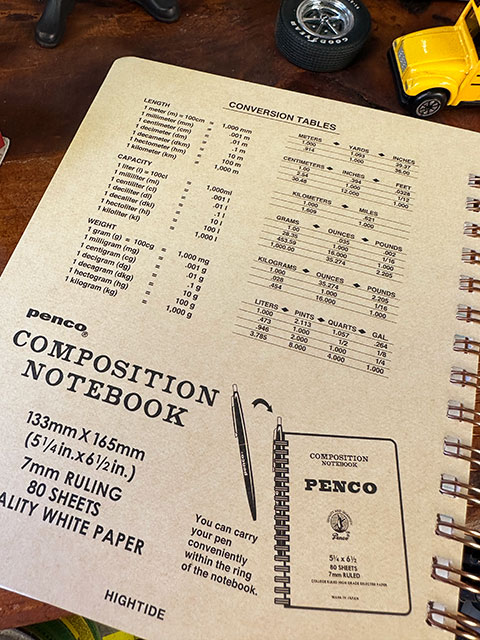 GOODYEAR
CONVERSION TABLES
LENGTH
1 meter (m) = 100cm = 1,000 mm
1 millimeter (mm) = .001 m
1 centimeter (cm) = .01 m
1 decimeter (dm) = .1 m
1 decameter (dkm) = 10 m
1 hectometer (hm) = 100 m
1 kilometer (km) = 1,000 m
CAPACITY
1 liter (l) = 100cl = 1,000ml
1 milliliter (ml) = .001 l
1 centiliter (cl) = .01 l
1 deciliter (dl) = .1 l
1 decaliter (dkl) = 10 l
1 hectoliter (hl) = 100 l
1 kiloliter (kl) = 1,000 l
WEIGHT
1 gram (g) = 100cg = 1,000 mg
1 milligram (mg) = .001 g
1 centigram (cg) = .01 g
1 decigram (dg) = .1 g
1 decagram (dkg) = 10 g
1 hectogram (hg) = 100 g
1 kilogram (kg) = 1,000 g
METERS YARDS INCHES
1.000 1.093 39.37
.914 1.000 36.00
CENTIMETERS INCHES FEET
1.00 .394 .0328
2.54 1.000 1/12
30.48 12.000 1.000
KILOMETERS MILES
1.000 .621
1.609 1.000
GRAMS OUNCES POUNDS
1.00 .035 .002
28.35 1.000 1/16
453.59 16.000 1.000
1,000.00 35.274 2.205
KILOGRAMS OUNCES POUNDS
1.000 35.274 2.205
.028 1.000 1/16
.454 16.000 1.000
LITERS PINTS QUARTS GAL.
1.000 2.113 1.057 .264
.473 1.000 1/2 1/8
.946 2.000 1.000 1/4
3.785 8.000 4.000 1.000
penco®
COMPOSITION
NOTEBOOK
133mm X 165mm
(5 1/4 in. x 6 1/2 in.)
7mm RULING
80 SHEETS
ALITY WHITE PAPER
You can carry
your pen
conveniently
within the ring
of the notebook.
COMPOSITION
NOTEBOOK
PENCO
Penco
5¼ x 6½
80 SHEETS
7mm RULED
COLLEGE RULED HIGH GRADE SELECTED PAPER
MADE IN JAPAN
HIGHTIDE